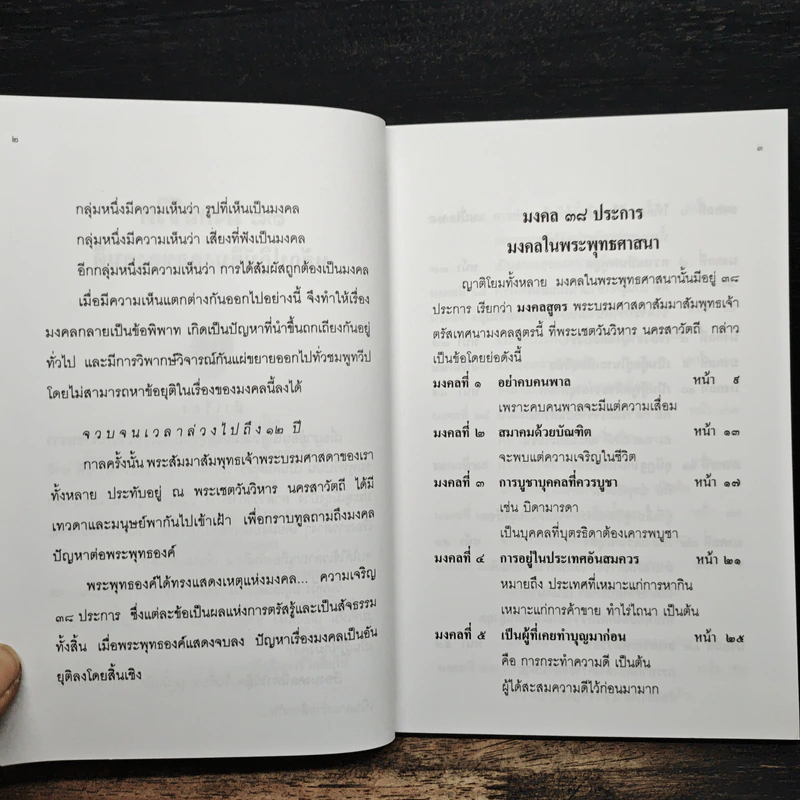 ๒
กลุ่มหนึ่งมีความเห็นว่า รูปที่เห็นเป็นมงคล
กลุ่มหนึ่งมีความเห็นว่า เสียงที่ฟังเป็นมงคล
อีกกลุ่มหนึ่งมีความเห็นว่า การได้สัมผัสถูกต้องเป็นมงคล
เมื่อมีความเห็นแตกต่างกันออกไปอย่างนี้ จึงทำให้เรื่อง
มงคลกลายเป็นข้อพิพาท เกิดเป็นปัญหาที่นำขึ้นถกเถียงกันอยู่
ทั่วไป และมีการวิพากษ์วิจารณ์กันแผ่ขยายออกไปทั่วชมพูทวีป
โดยไม่สามารถหาข้อยุติในเรื่องของมงคลนี้ลงได้
จวบจนเวลาล่วงไปถึง ๑๒ ปี
กาลครั้งนั้น พระสัมมาสัมพุทธเจ้าพระบรมศาสดาของเรา
ทั้งหลาย ประทับอยู่ ณ พระเชตวันวิหาร นครสาวัตถี ได้มี
เทวดาและมนุษย์พากันไปเข้าเฝ้า เพื่อกราบทูลถามถึงมงคล
ปัญหาต่อพระพุทธองค์
พระพุทธองค์ได้ทรงแสดงเหตุแห่งมงคล... ความเจริญ
๓๘ ประการ ซึ่งแต่ละข้อเป็นผลแห่งการตรัสรู้และเป็นสัจธรรม
ทั้งสิ้น เมื่อพระพุทธองค์แสดงจบลง ปัญหาเรื่องมงคลเป็นอัน
ยุติลงโดยสิ้นเชิง
๓
มงคล ๓๘ ประการ
มงคลในพระพุทธศาสนา
ญาติโยมทั้งหลาย มงคลในพระพุทธศาสนานั้นมีอยู่ ๓๘
ประการ เรียกว่า มงคลสูตร พระบรมศาสดาสัมมาสัมพุทธเจ้า
ตรัสเทศนามงคลสูตรนี้ ที่พระเชตวันวิหาร นครสาวัตถี กล่าว
เป็นข้อโดยย่อดังนี้
มงคลที่ ๑ อย่าคบคนพาล หน้า ๙
เพราะคบคนพาลจะมีแต่ความเสื่อม
มงคลที่ ๒ สมาคมด้วยบัณฑิต หน้า ๑๓
จะพบแต่ความเจริญในชีวิต
มงคลที่ ๓ การบูชาบุคคลที่ควรบูชา หน้า ๑๗
เช่น บิดามารดา
เป็นบุคคลที่บุตรธิดาต้องเคารพบูชา
มงคลที่ ๔ การอยู่ในประเทศอันสมควร หน้า ๒๑
หมายถึง ประเทศที่เหมาะแก่การหากิน
เหมาะแก่การค้าขาย ทำไร่ไถนา เป็นต้น
มงคลที่ ๕ เป็นผู้ที่เคยทำบุญมาก่อน หน้า ๒๕
คือ การกระทำความดี เป็นต้น
ผู้ได้สะสมความดีไว้ก่อนมามาก